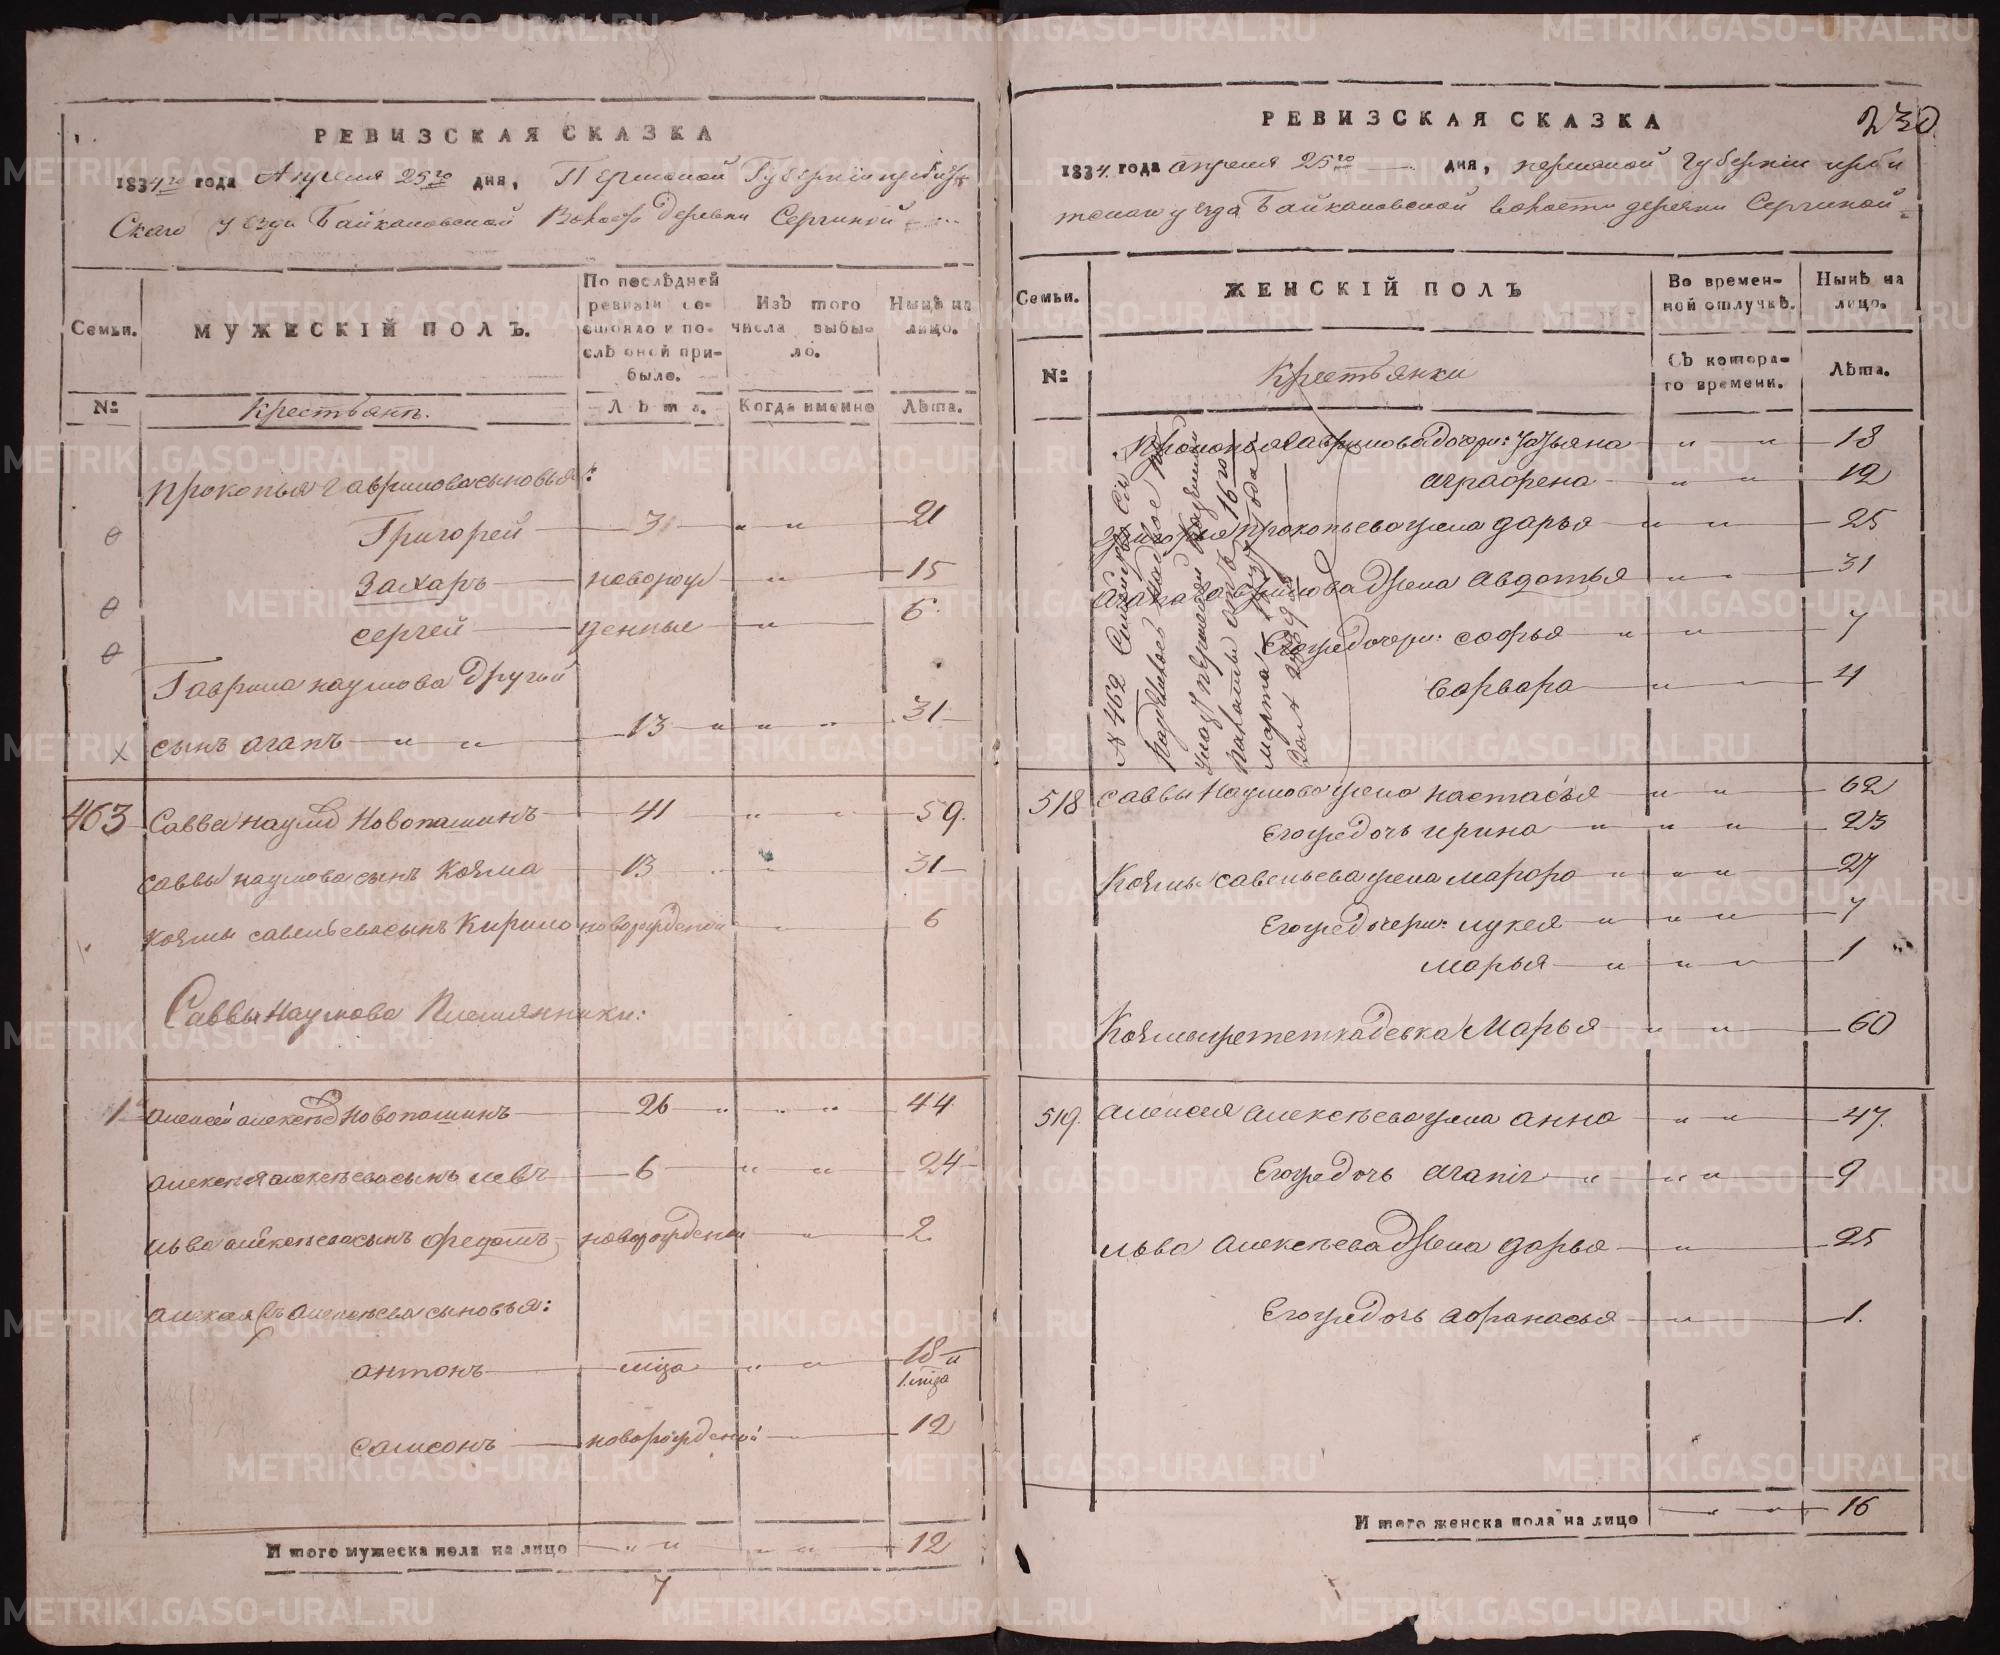 РЕВИЗСКАЯ СКАЗКА
1834го года Апреля 25го дня, Пермской Губернии ирбит
Скаго уезда Байкаловской Волости деревни Сергиной
Семьи. МУЖЕСКІЙ ПОЛЪ. По послѣдней ревизіи состояло и послѣ оной прибыло. Изъ того числа выбыло. Нынѣ на лицо.
№ Крестьянъ. Лѣта. Когда именно Лѣта.
Прокопья Гаврилова сыновья:
Григорей 3 " " 21
Захаръ новорож " 15
Сергей денные " 6
Гаврила наумова другой
сынъ агапъ " " 13 " " " 31
463 Савва наумов Новопашинъ 41 " " 59.
Саввы наумова сынъ Козма 13 " " 31
Козмы савельева сынъ Кирило новорожденой " 6
Саввы Наумова Племянники:
1й алексей алексеев Новопашинъ 26 " " " 44
алексея алексеева сынъ левъ 6 " " 24
льва алексеева сынъ федотъ новорожденой " 2.
алексеева сыновья:
антонъ мца " " 18 и
1. мца
самсонъ новорожденой 12
Итого мужеска пола на лицо " " " " 12
7
230.
РЕВИЗСКАЯ СКАЗКА
1834. года апреля 25го дня, пермской губернии ирби
тскаго уезда Байкаловской волости деревни Сергиной
Семьи. ЖЕНСКІЙ ПОЛЪ Во временной отлучкѣ. Нынѣ на лицо.
№ Крестьянки Съ котораго времени. Лѣта.
Прокопья Гаврилова дочери: Татьяна " " 18
аграфена " " 12
Григорья прокопьева жена дарья " " 25
агапа Гаврилова жена авдотья " " 31
Его же дочери: софья " " 7
варвара " " 4
№ 462
Казенной
палаты отъ 16го
марта года
518 саввы Наумова жена настасья " " 62
Его же дочь ирина " " " 23
Козмы савельева жена марфа " " " 27
Его же дочери: лукея " " " 7
марья " " " 1
Козмы же тетка девка Марья " " 60
519. алексея алексеева жена анна " " 47.
Его же дочь агапія " " " 9
льва алексеева жена дарья " 25
Его же дочь афанасья " 1.
Итого женска пола на лицо " " 16
METRIKI.GASO-URAL.RU